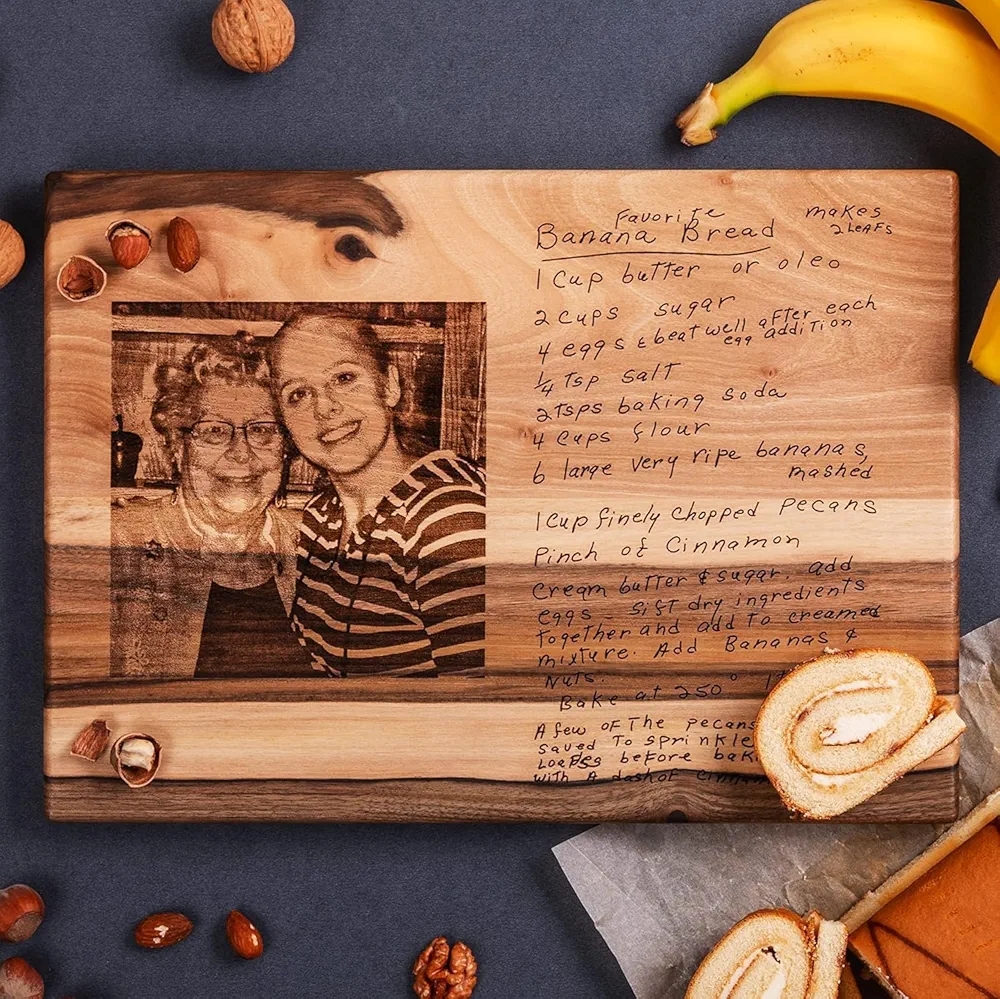 Favorite
Banana Bread
makes
2 LeAFs
1 Cup butter or oleo
2 cups sugar
4 eggs & beat well after each
egg addition
1/4 Tsp salt
2 Tsps baking soda
4 cups flour
6 large very ripe bananas,
mashed
1 Cup finely chopped Pecans
Pinch of Cinnamon
Cream butter & sugar. add
eggs - Sift dry ingredients
together and add to creamed
mixture. Add Bananas &
Nuts.
Bake at 250°
A few of The pecans
saved To sprinkle
before
with A dash of